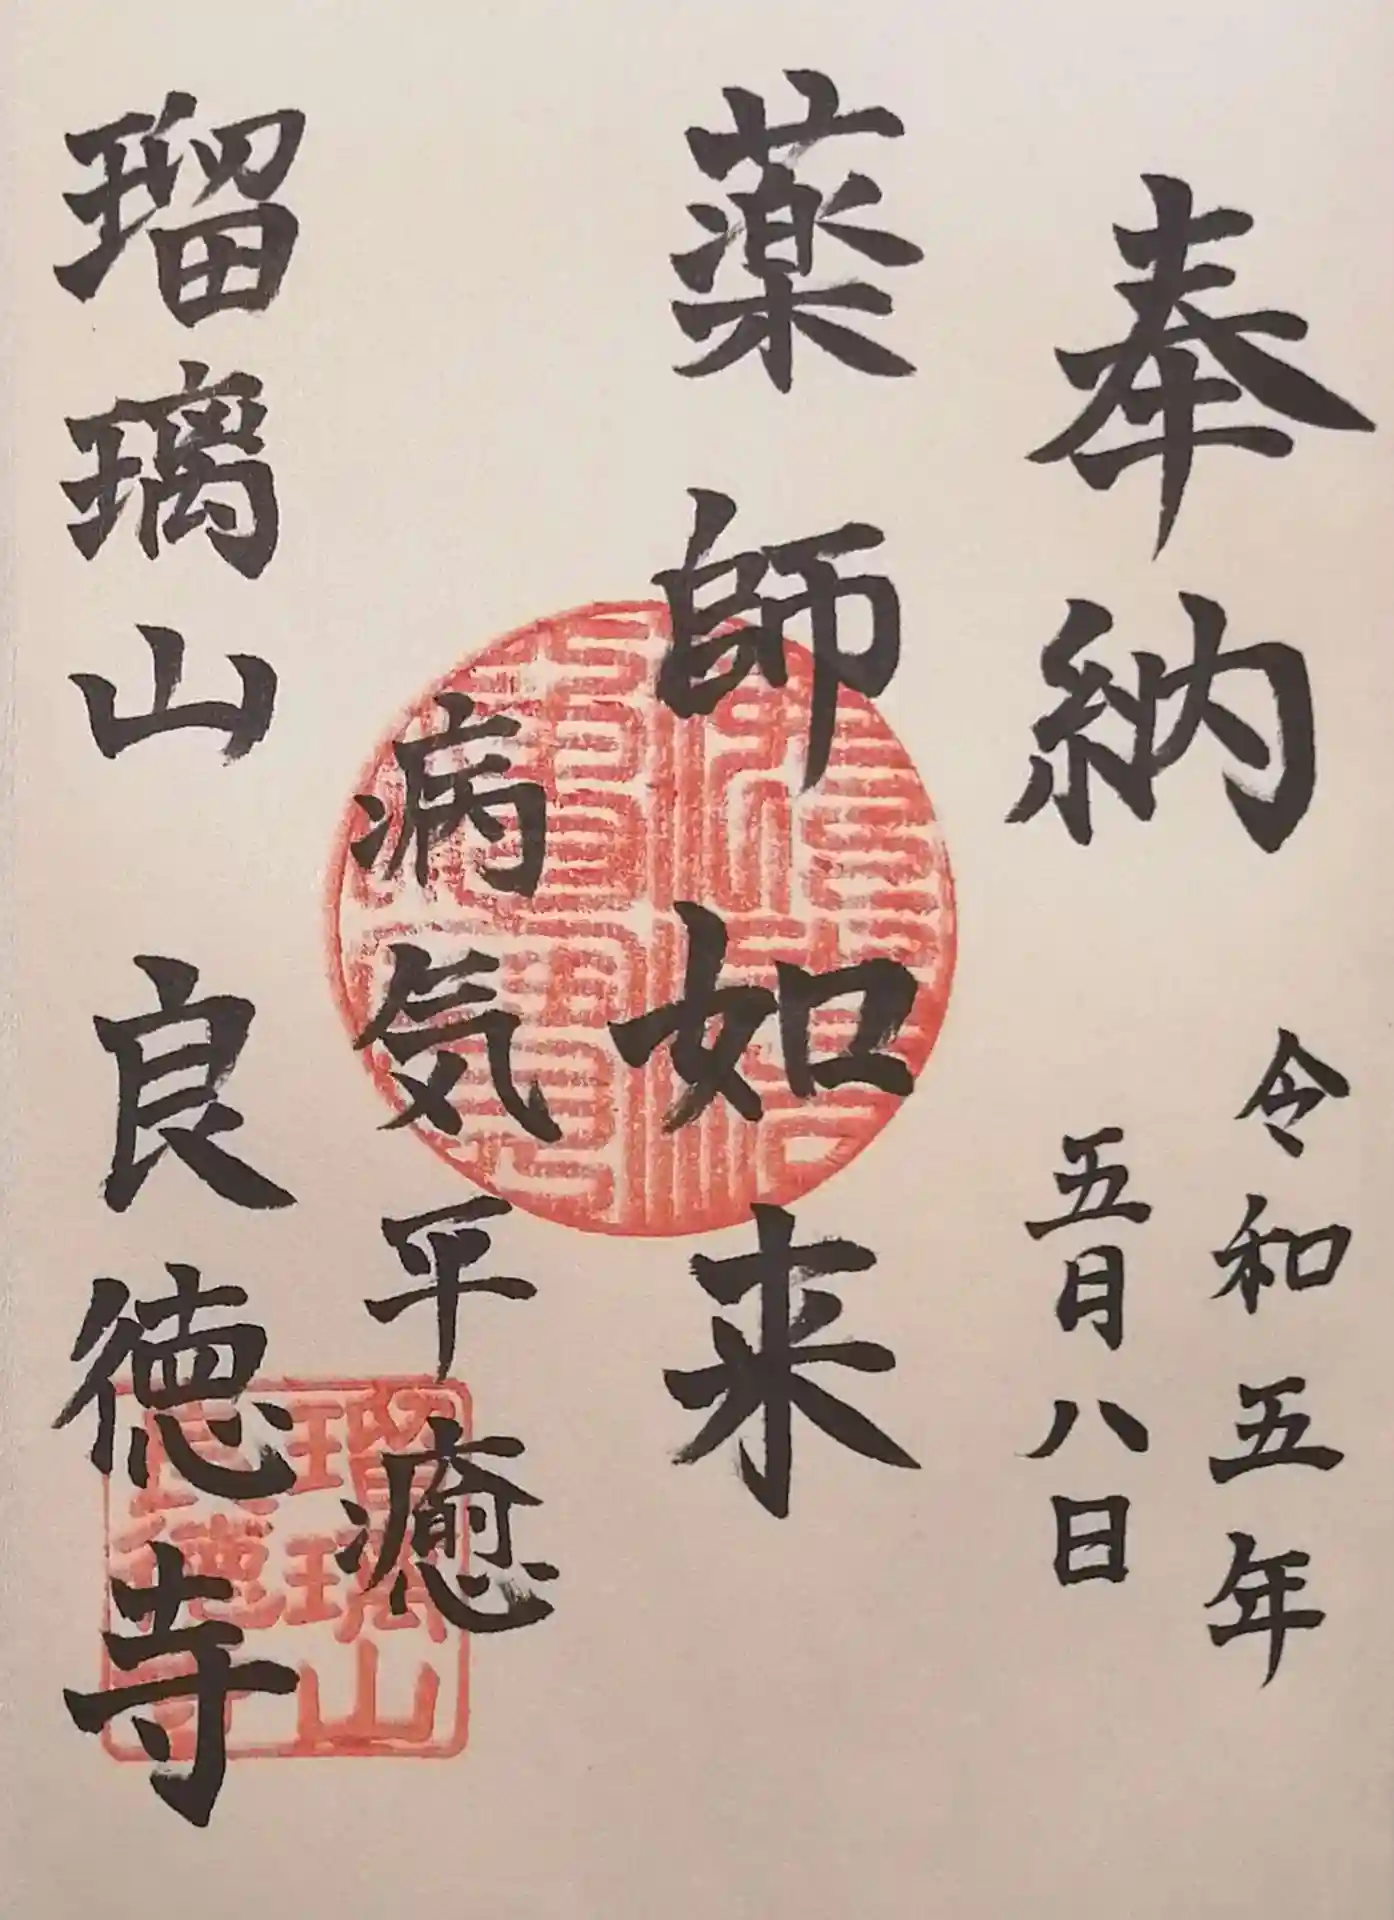 奉納
令和五年
五月八日
薬師如来
病気平癒
瑠璃山 良徳寺
瑠璃山
良徳寺